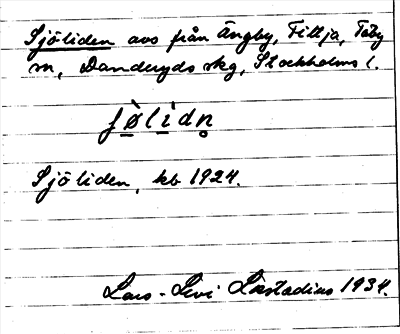 Sjöliden avs från Ängby, Tillja, Täby
sn, Danderyds skg, Stockholms l.
ʃø̀lìdn̥
Sjöliden, kb 1924.
Lars-Levi Læstadius 1934.